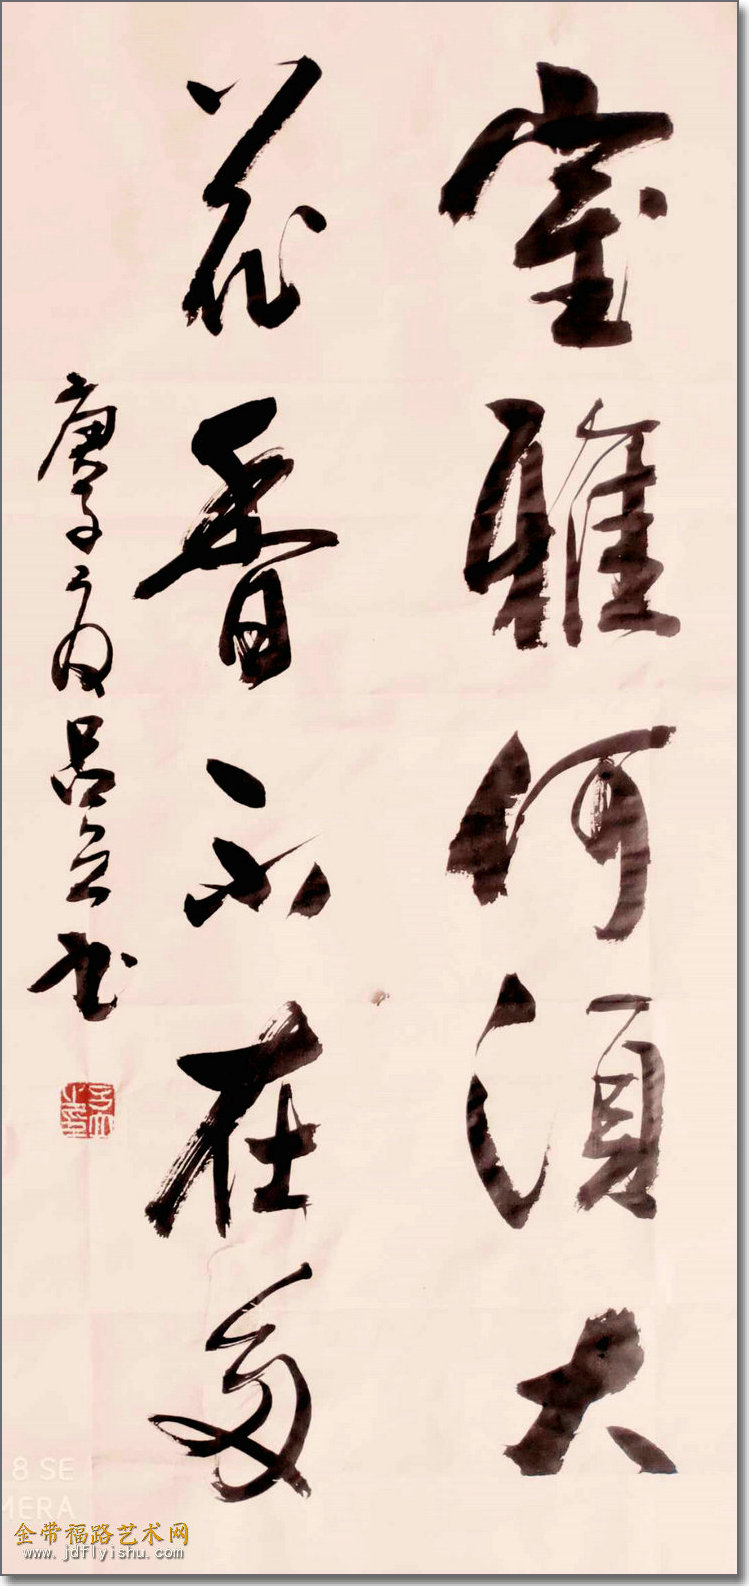 室雅何須大
花香不在多
庚子夏吕立书
8 SE
MERA
金带福路艺术网
www.jdflyishu.com